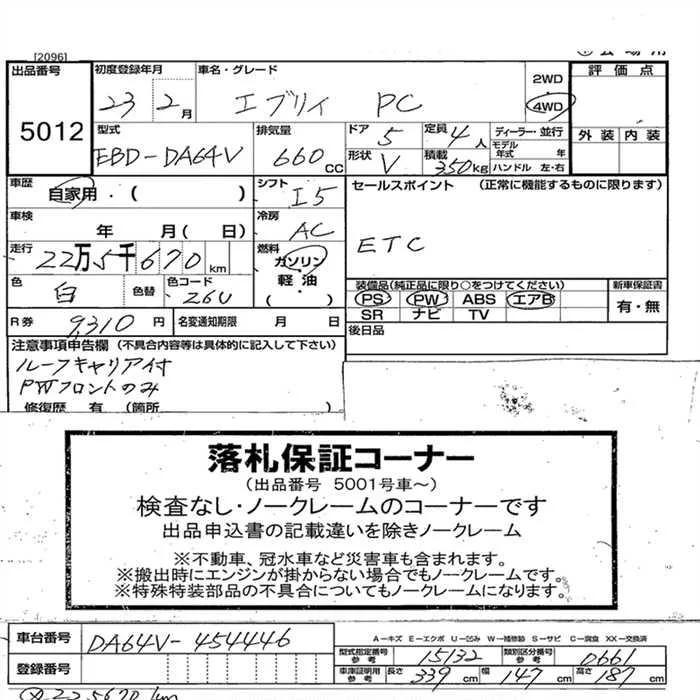 [2096]
出品番号 初度登録年月 車名・グレード 2WD 評価点
5012 23 2月 エブリイ PC 4WD
外装 内装
型式 排気量 ドア 5 定員 4人 ディーラー・並行
モデル年式 年
EBD-DA64V 660cc 形状 V 積載 350kg ハンドル 左・右
車歴 自家用・( ) シフト I5 セールスポイント (正常に機能するものに限ります)
車検 年 月(日) 冷房 AC
ETC
走行 22万5千670km 燃料 ガソリン 軽油 ( )
色 白 色替 色コード 26U
装備品(純正品に限り○をつけてください) 新車保証書
PS PW ABS エアB 有・無
SR ナビ TV
R券 9,310円 名変通知期限 月 日
後日品
注意事項申告欄 (不具合内容等は具体的に記入して下さい)
ルーフキャリア付
PWフロントのみ
修復歴 有 (箇所 )
落札保証コーナー
(出品番号 5001号車~)
検査なし・ノークレームのコーナーです
出品申込書の記載違いを除きノークレーム
※不動車、冠水車など災害車も含まれます。
※搬出時にエンジンが掛からない場合でもノークレームです。
※特殊特装部品の不具合についてもノークレームになります。
A-キズ E-エクボ U-凹み W-補修跡 S-サビ C-腐食 XX-交換済
車台番号 DA64V-454446
型式指定番号 参考 15132 類別区分番号 参考 0661
登録番号
車庫証明用 参考 長さ 339cm 幅 147cm 高さ 187cm